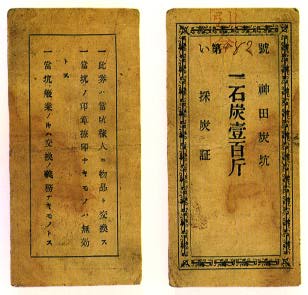 一此券ハ當坑稼人ニ物品ト交換ス
一當坑ノ印章捺印ナキモノハ無効
トス
一當坑廢業ノ節ハ交換ノ義務ナキモノトス
い第482號
神田炭坑
一石炭壹百斤
採炭証